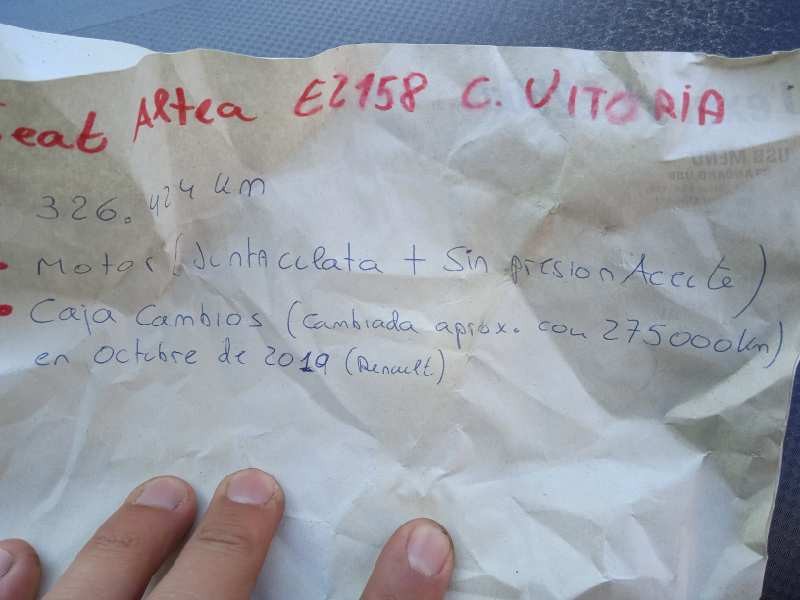 Seat Altea E2158 C. VITORIA
326.424 km
USB MENU
STANDARD USB
• Motor (Junta culata + Sin presion Aceite)
• Caja Cambios (Cambiada aprox. con 275000km)
en Octubre de 2019 (Renault.)